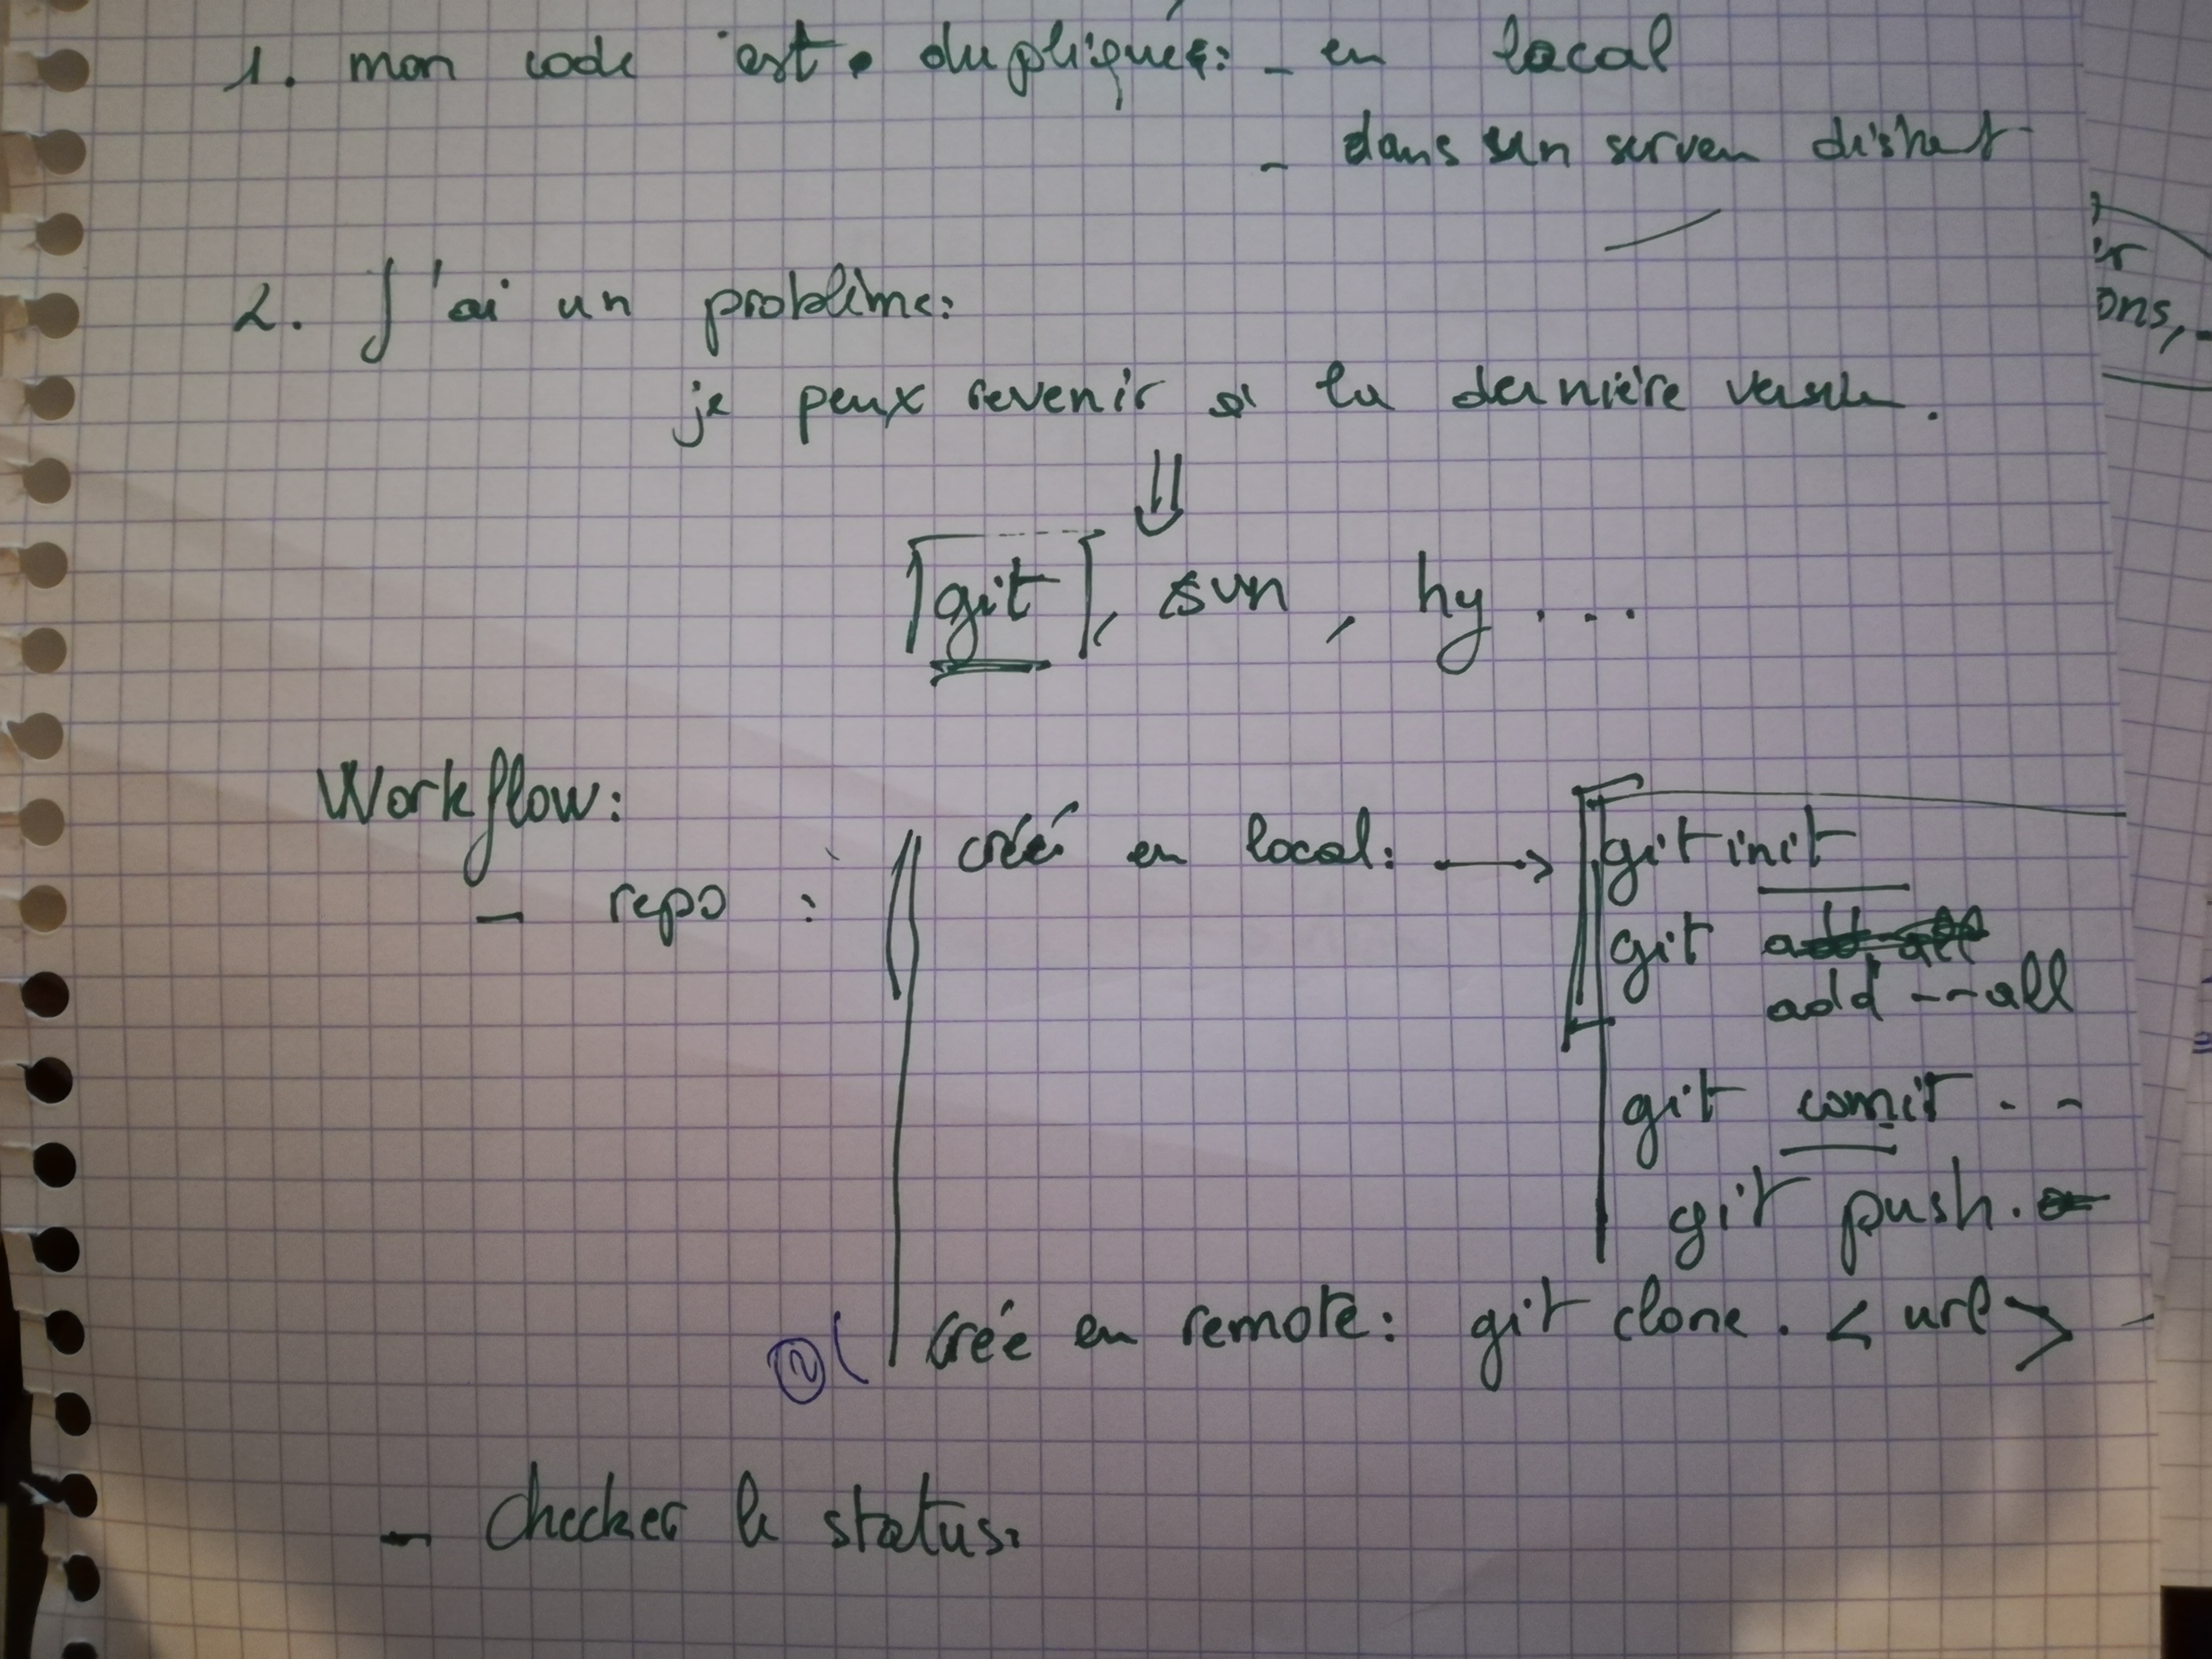 1. mon code est dupliqué: - en local
- dans un serveu distant
2. J'ai un problème:
je peux revenir à la dernière version.
git, svn, hg ...
Workflow:
créé en local: → git init
- repo :
git add all
add --all
git comit - -
git push.
② crée en remote: git clone. < url >
- Checker le status:
ir
ons,